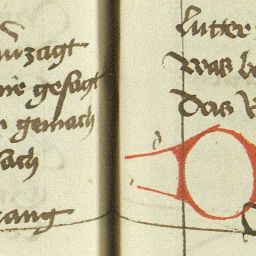 v̈zagt
nie gesagt
gemach
ach
ang
lutter
Was b
Das